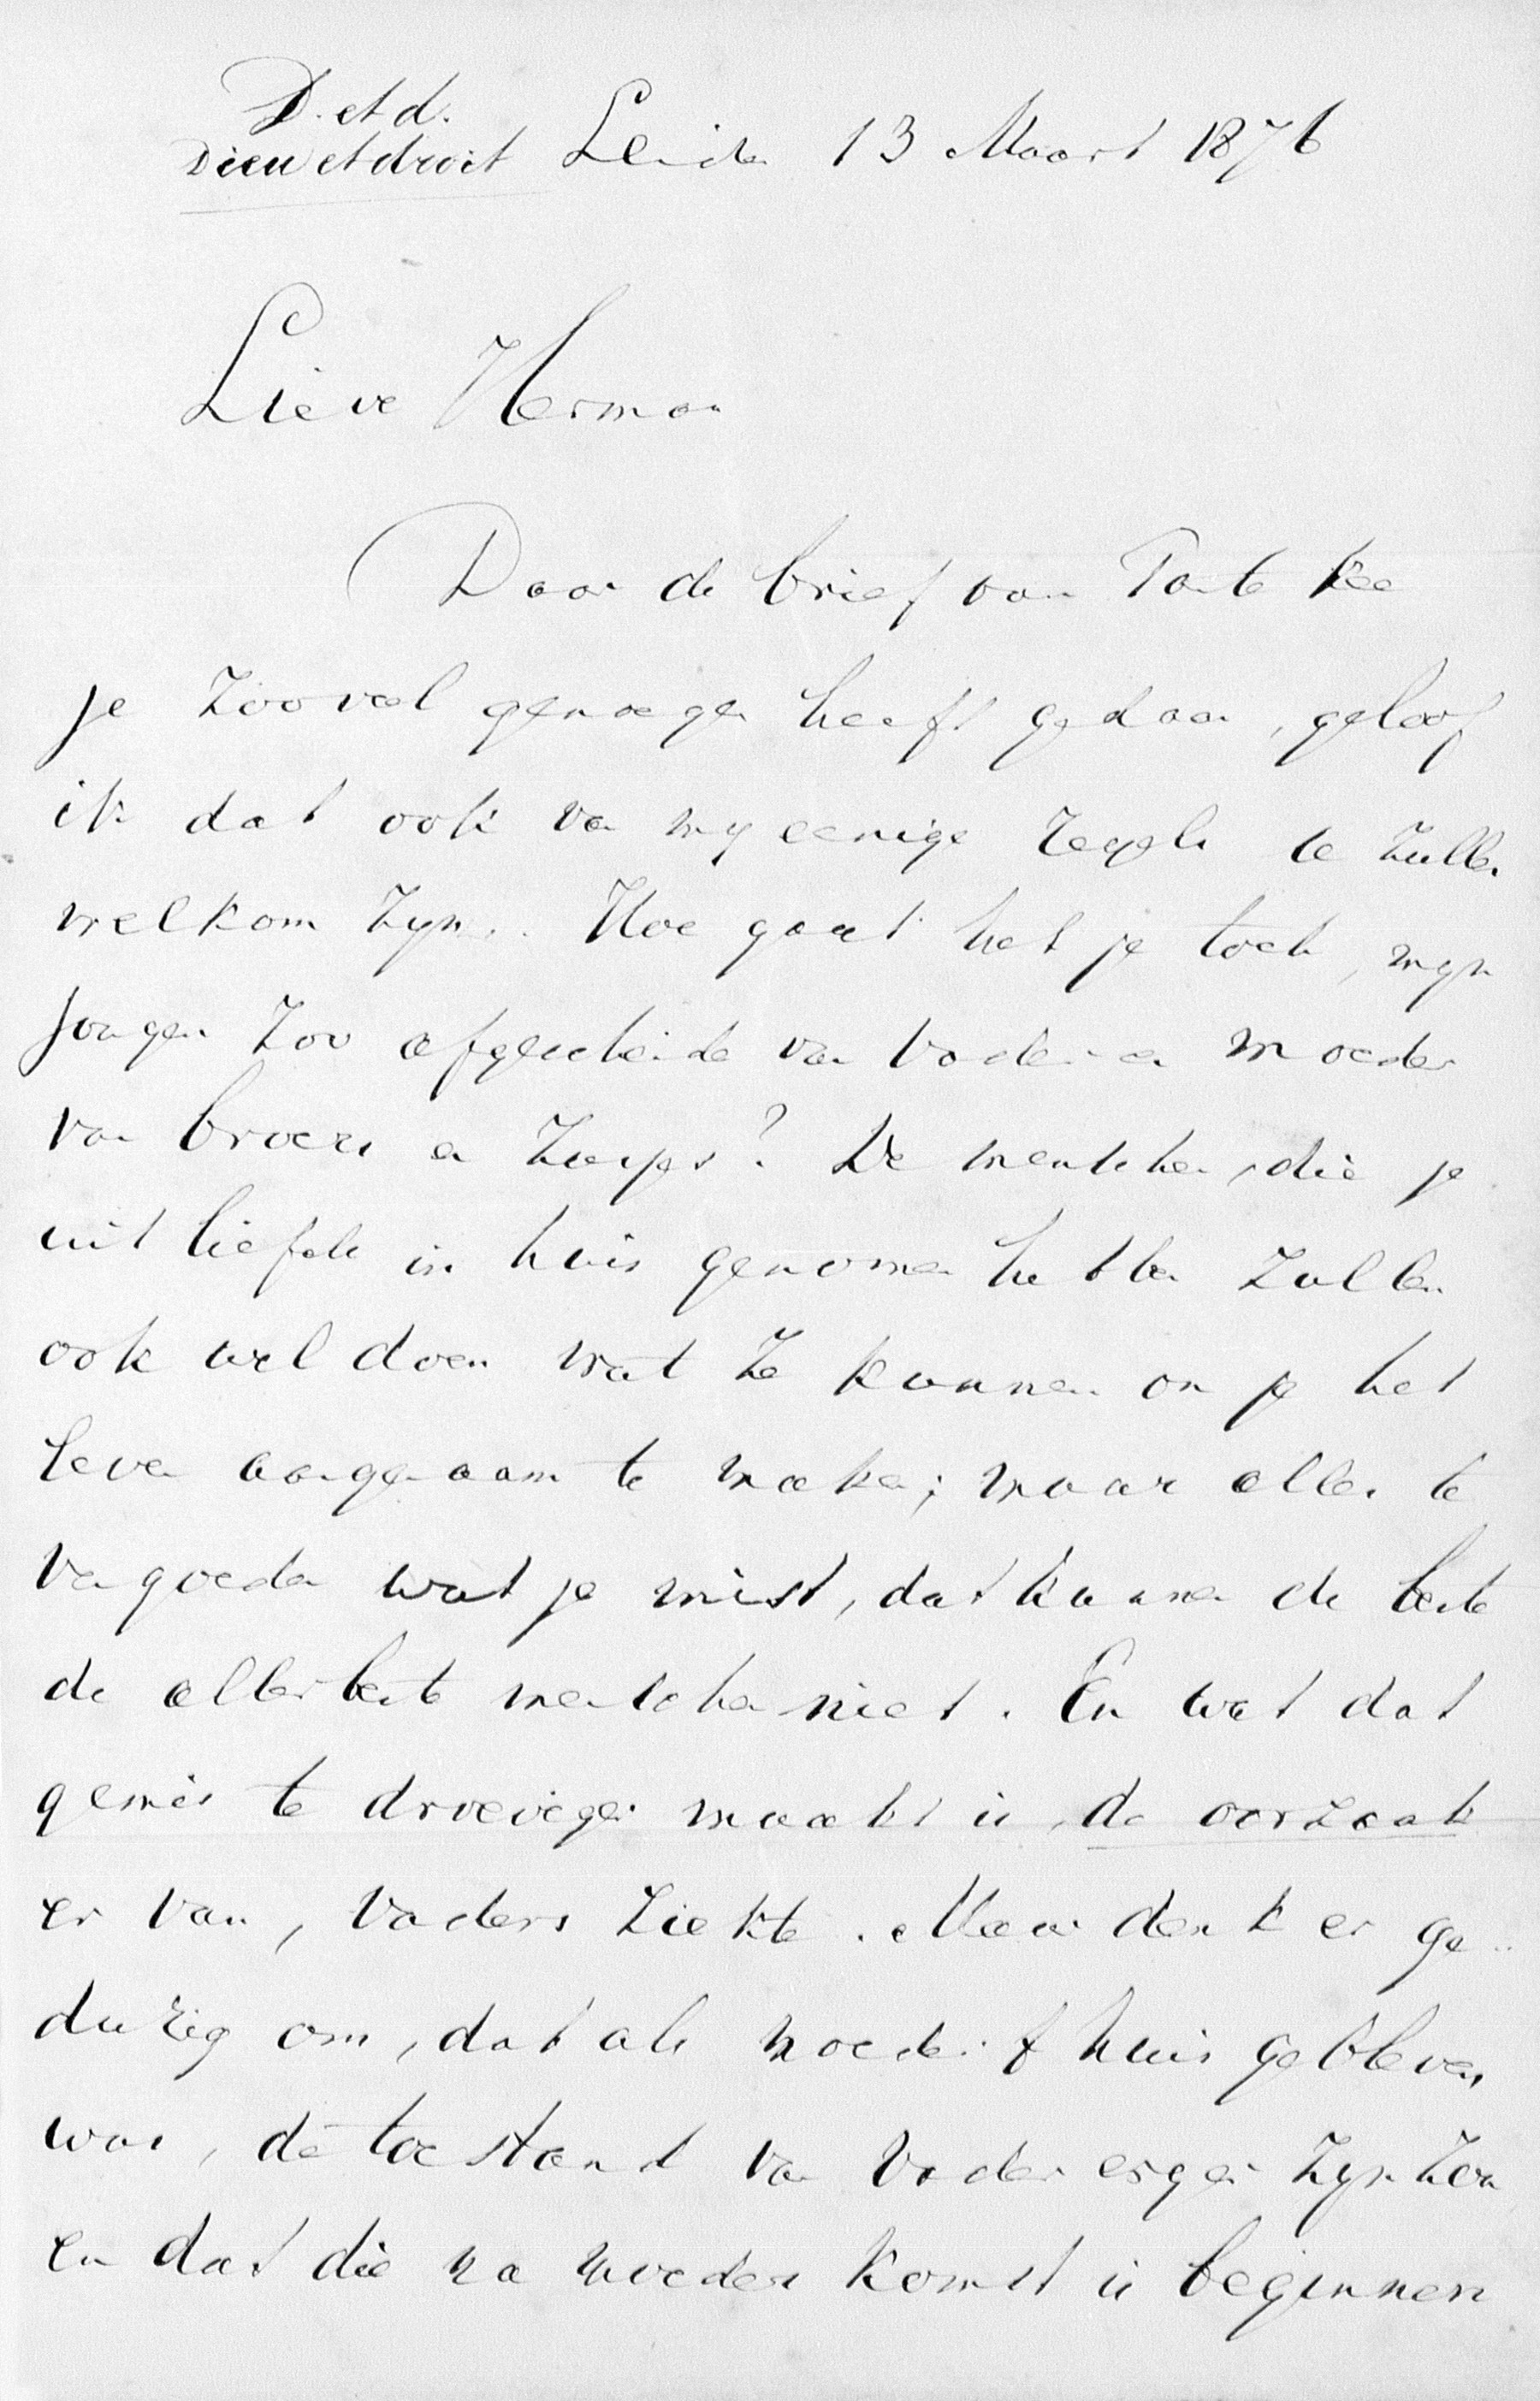 D. et d.
Dieu et droit Leiden 13 Maart 1876
Lieve Herman
Daar de brief van Tante Kee
je zooveel genoegen heeft gedaan, geloof
ik dat ook van my eenige regels je zullen
welkom zyn. Hoe gaat het je toch, myn
jongen zoo afgescheiden van Vader en moeder
van broers en zusjes? De menschen, die je
uit liefde in huis genomen hebben zullen
ook wel doen wat ze kunnen om je het
leven aangenaam te maken; maar alles te
vergoeden wat je mist, dat kunnen de beste
de allerbeste menschen niet. En wat dat
gemis te droeviger maakt is, de oorzaak
er van, Vaders ziekte. Maar denk er ge-
durig om, dat als moeder t'huis gebleven
was, de toestand van Vader erger zyn zou
en dat die na moeders komst is beginnen